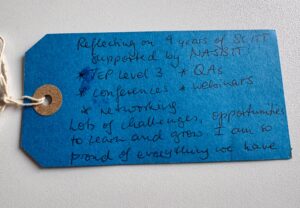 Reflecting on 4 years of SCITT
supported by NASBTT
* TEP Level 3 * QAs
* Conferences * Webinars
* Networking
Lots of challenges, opportunities
to learn and grow. I am so
proud of everything we have